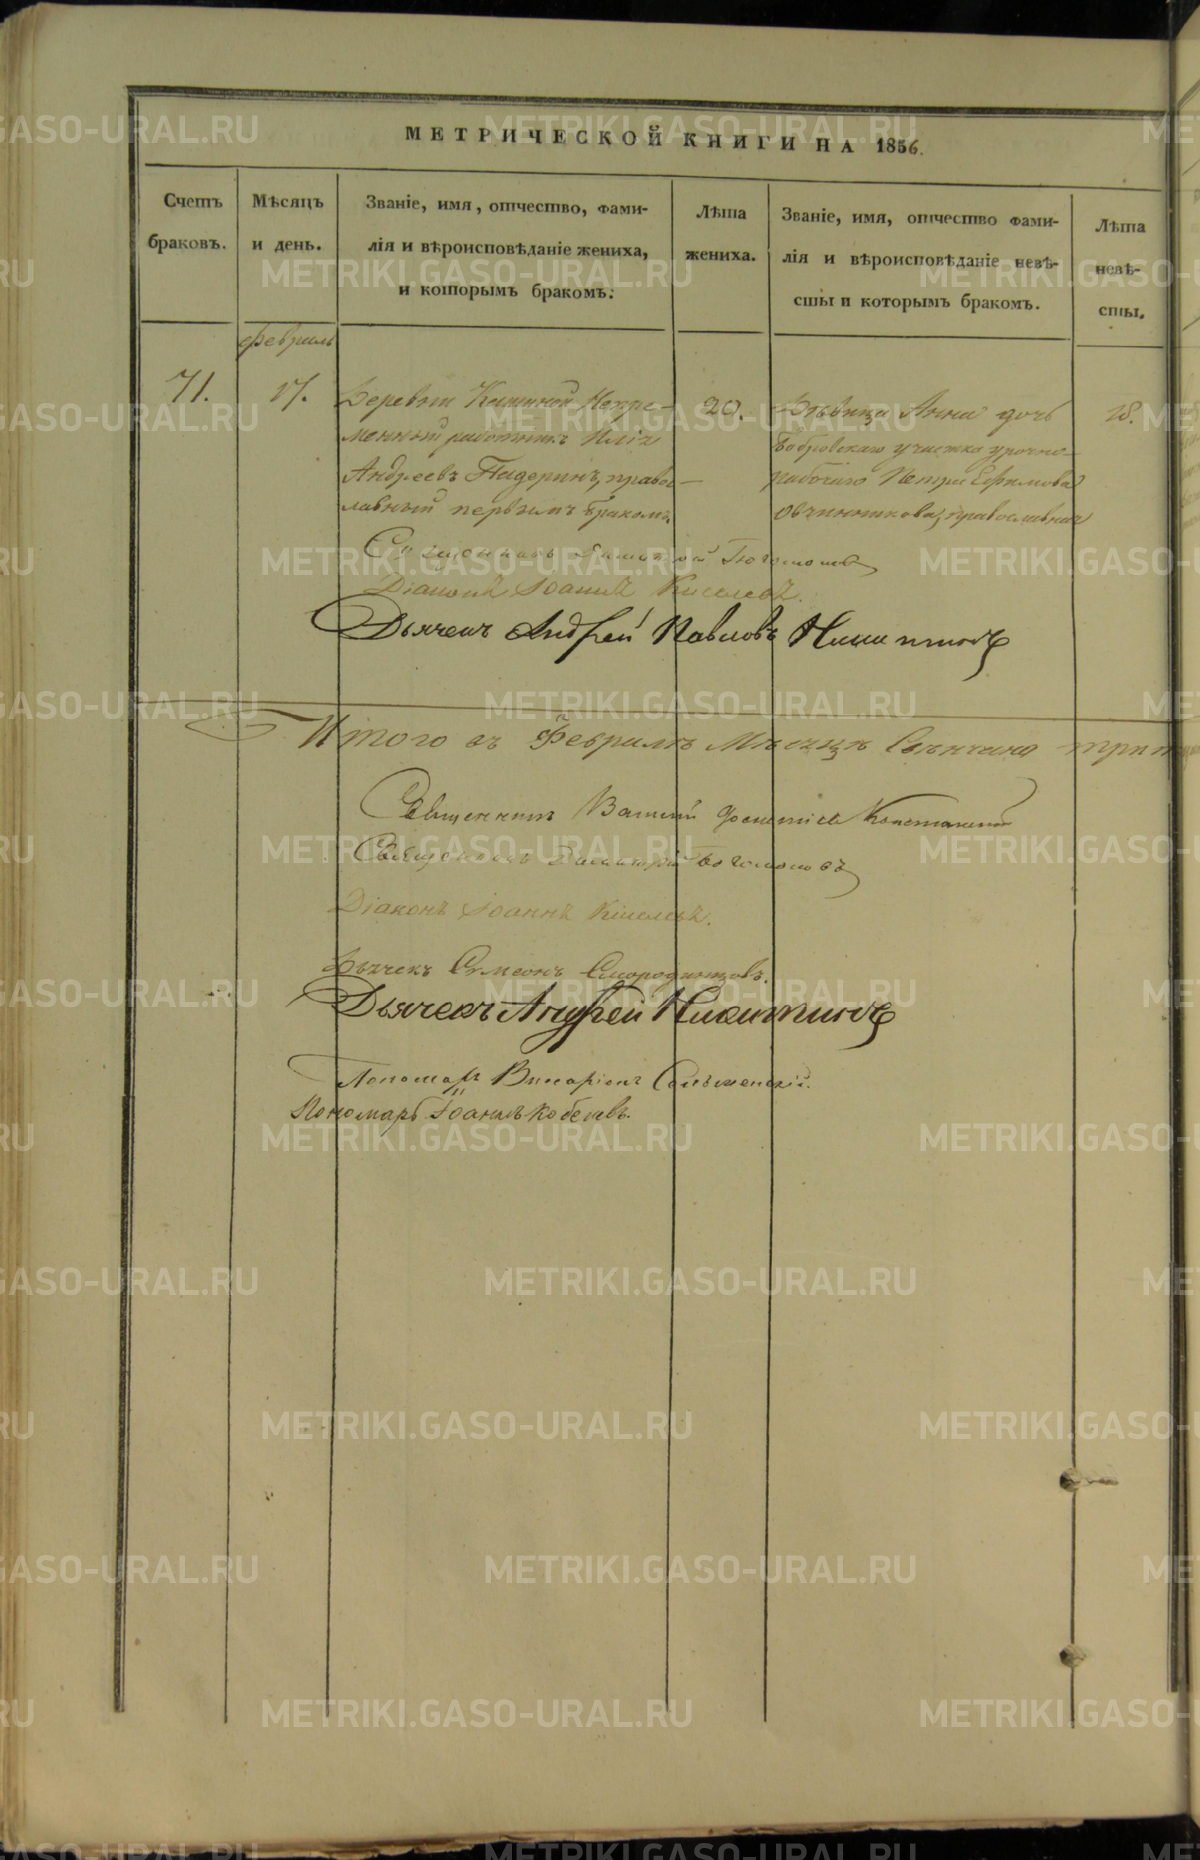 МЕТРИЧЕСКОЙ КНИГИ НА 1856.
Счетъ браковъ.
Мѣсяцъ и день.
Званіе, имя, отчество, фами-
лія и вѣроисповѣданіе жениха,
и которымъ бракомъ.
Лѣта жениха.
Званіе, имя, отчество фами-
лія и вѣроисповѣданіе невѣ-
сты и которымъ бракомъ.
Лѣта
невѣ-
сты.
Февраль
71.
17.
Деревни Непре-
менный работникъ Илія
Андреевъ Падеринъ, правос-
лавный первымъ бракомъ.
20.
Дѣвица Анна дочь
Бобровскаго участка урочно-
рабочаго Петра Ефимова
Овчинникова, православная
18.
Священникъ Димитрій
Діаконъ Іоаннъ Киселевъ.
Дьячекъ Андрей Павловъ Никитинъ
Итого въ Февралѣ Мѣсяцѣ
Священникъ
Священникъ Димитрій
Діаконъ Іоаннъ Киселевъ.
Дьячекъ Симеонъ Смородинцовъ.
Дьячекъ Андрей Никитинъ
Пономарь Виссаріонъ
Пономарь Іоаннъ
METRIKI.GASO-URAL.RU